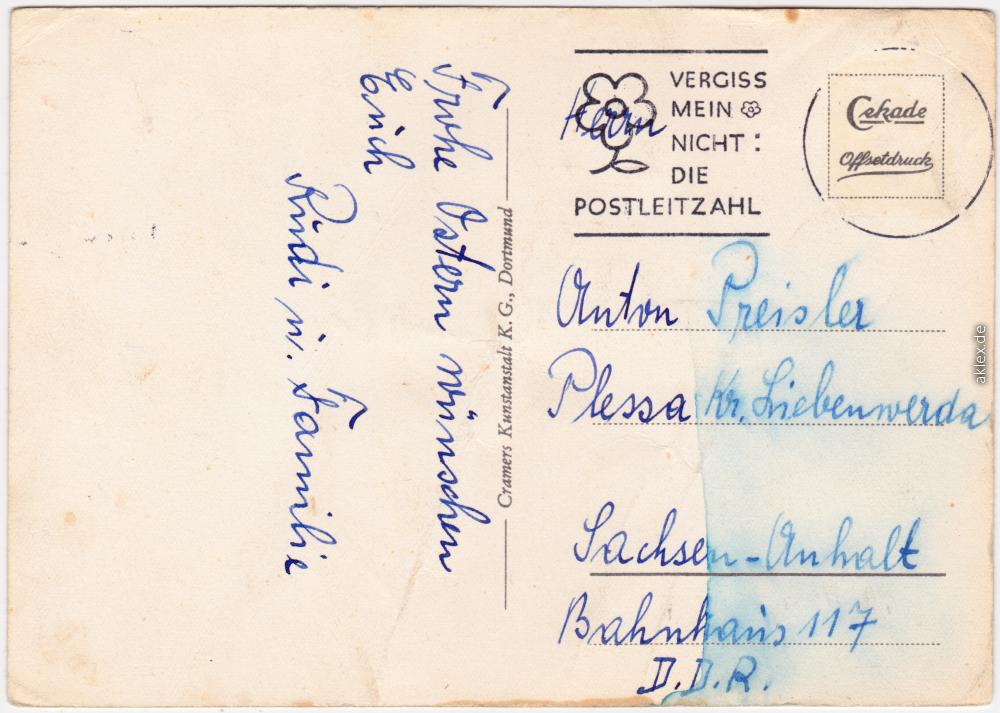 Frohe Ostern wünschen
Euch
Rudi u. Familie
Cramers Kunstanstalt K. G., Dortmund
VERGISS
MEIN
NICHT:
DIE
POSTLEITZAHL
Cekade
Offsetdruck
Herrn
Anton Preisler
Plessa Kr. Liebenwerda
Sachsen-Anhalt
Bahnhaus 117
D.D.R.
aklex.de